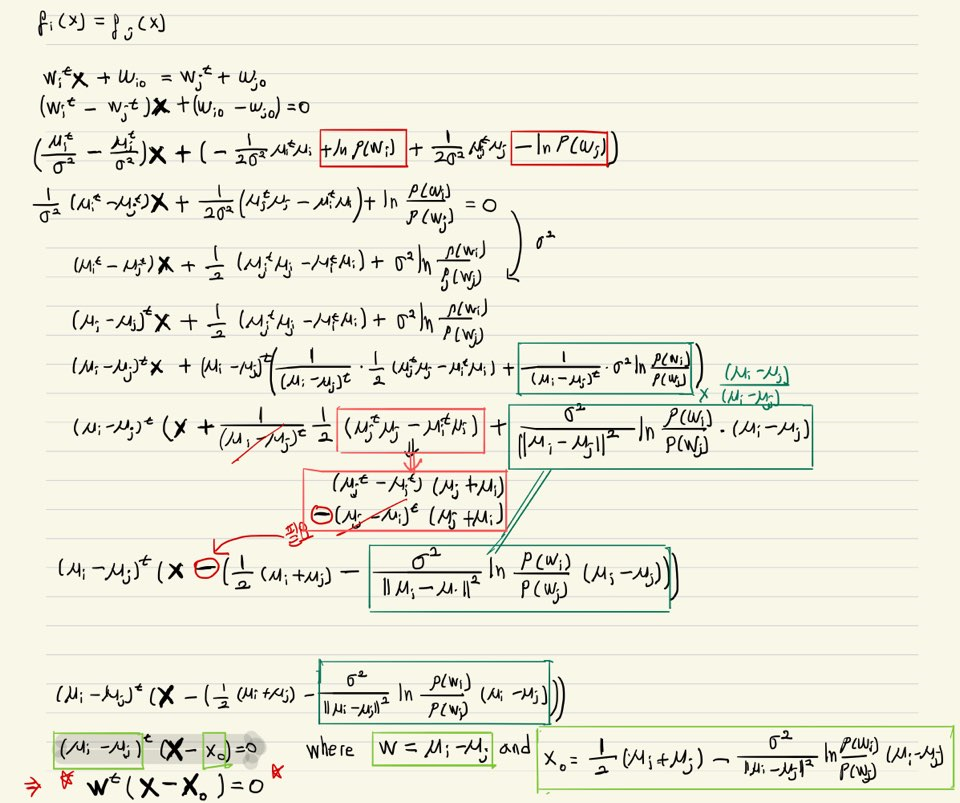 f_i(x) = f_j(x)
w_i^t x + w_{i0} = w_j^t + w_{j0}
(w_i^t - w_j^t)x + (w_{i0} - w_{j0}) = 0
(μ_i^t/σ² - μ_i^t/σ²)x + (- 1/2σ² μ_i^t μ_i + ln P(w_i) + 1/2σ² μ_j^t μ_j - ln P(w_j))
1/σ² (μ_i^t - μ_j^t)x + 1/2σ² (μ_j^t μ_j - μ_i^t μ_i) + ln P(w_i)/P(w_j) = 0
σ²
(μ_i^t - μ_j^t)x + 1/2 (μ_j^t μ_j - μ_i^t μ_i) + σ² ln P(w_i)/P(w_j)
(μ_i - μ_j)^t x + 1/2 (μ_j^t μ_j - μ_i^t μ_i) + σ² ln P(w_i)/P(w_j)
(μ_i - μ_j)^t x + (μ_i - μ_j)^t (1/(μ_i - μ_j)^t · 1/2 (μ_j^t μ_j - μ_i^t μ_i) + 1/(μ_i - μ_j)^t · σ² ln P(w_i)/P(w_j))
× (μ_i - μ_j)/(μ_i - μ_j)
(μ_i - μ_j)^t (x + 1/(μ_i - μ_j)^t 1/2 (μ_j^t μ_j - μ_i^t μ_i) + σ²/||μ_i - μ_j||² ln P(w_i)/P(w_j) · (μ_i - μ_j)
⇒
(μ_j^t - μ_i^t) (μ_j + μ_i)
- (μ_j - μ_i)^t (μ_j + μ_i)
필요
(μ_i - μ_j)^t (x - (1/2 (μ_i + μ_j) - σ²/||μ_i - μ.||² ln P(w_i)/P(w_j) (μ_i - μ_j)))
(μ_i - μ_j)^t (x - (1/2 (μ_i + μ_j) - σ²/||μ_i - μ_j||² ln P(w_i)/P(w_j) (μ_i - μ_j)))
(μ_i - μ_j)^t (x - x_0) = 0 where w = μ_i - μ_j and x_0 = 1/2 (μ_i + μ_j) - σ²/||μ_i - μ_j||² ln P(w_i)/P(w_j) (μ_i - μ_j)
⇒ ☆ w^t (x - x_0) = 0 ☆